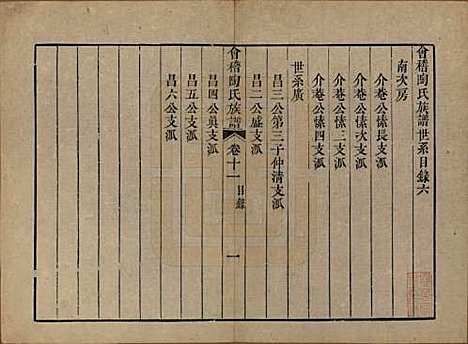 會稽陶氏族譜世系目錄六
南次房
介菴公傃長支派
介菴公傃次支派
介菴公傃三支派
介菴公傃四支派
世系廣
昌二公第三子仲清支派
昌三公盛支派
會稽陶氏族譜 卷十一 目錄 一
昌四公眞支派
昌五公支派
昌六公支派